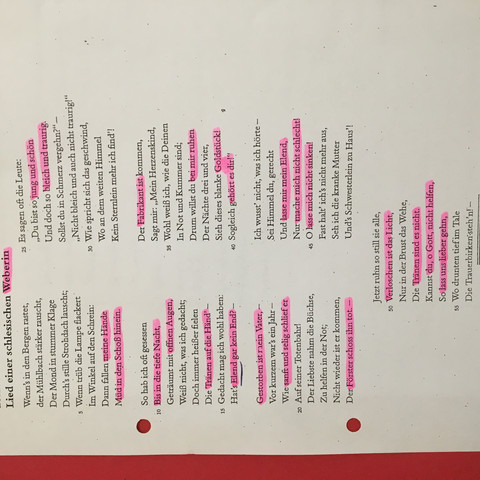 Lied einer schlesischen Weberin
Wenn's in den Bergen rastet,
der Mühlbach stärker rauscht,
Der Mond in stummer Klage
Durch's stille Strohdach lauscht;
5 Wenn trüb die Lampe flackert
Im Winkel auf den Schrein:
Dann fallen meine Hände
Müd in den Schoß hinein.
So hab ich oft gesessen
10 Bis in die tiefe Nacht,
Geträumt mit offnen Augen,
Weiß nicht, was ich gedacht;
Doch immer heißer fielen
Die Tränen auf die Händ' –
15 Gedacht mag ich wohl haben:
Hat's Elend gar kein End? –
Gestorben ist mein Vater, –
Vor kurzem war's ein Jahr –
Wie sanft und selig schlief er
20 Auf seiner Totenbahr!
Der Liebste nahm die Büchse,
Zu helfen in der Not;
Nicht wieder ist er kommen,
Der Förster schoss ihn tot. –
25 Es sagen oft die Leute:
„Du bist so jung und schön
Und doch so bleich und traurig,
Sollst du in Schmerz vergehn?" –
„Nicht bleich und auch nicht traurig!"
30 Wie spricht sich das geschwind,
Wo an dem weiten Himmel
Kein Sternlein mehr ich find'!
Der Fabrikant ist kommen,
Sagt mir: „Mein Herzenskind,
35 Wohl weiß ich, wie die Deinen
In Not und Kummer sind;
Drum willst du bei mir ruhen
Der Nächte drei und vier,
Sieh dieses blanke Goldstück!
40 Sogleich gehört es dir!"
Ich wusst' nicht, was ich hörte –
Sei Himmel du, gerecht
Und lasse mir mein Elend,
Nur mache mich nicht schlecht!
45 O lasse mich nicht sinken!
Fast halt' ich's nicht mehr aus,
Seh ich die kranke Mutter
Und's Schwesterlein zu Haus'!
Jetzt ruhn so still sie alle,
50 Verloschen ist das Licht,
Nur in der Brust das Wehe,
Die Tränen sind es nicht.
Kannst du, o Gott, nicht helfen,
So lass uns lieber gehn,
55 Wo drunten tief im Tale
Die Trauerbirken steh'n! –